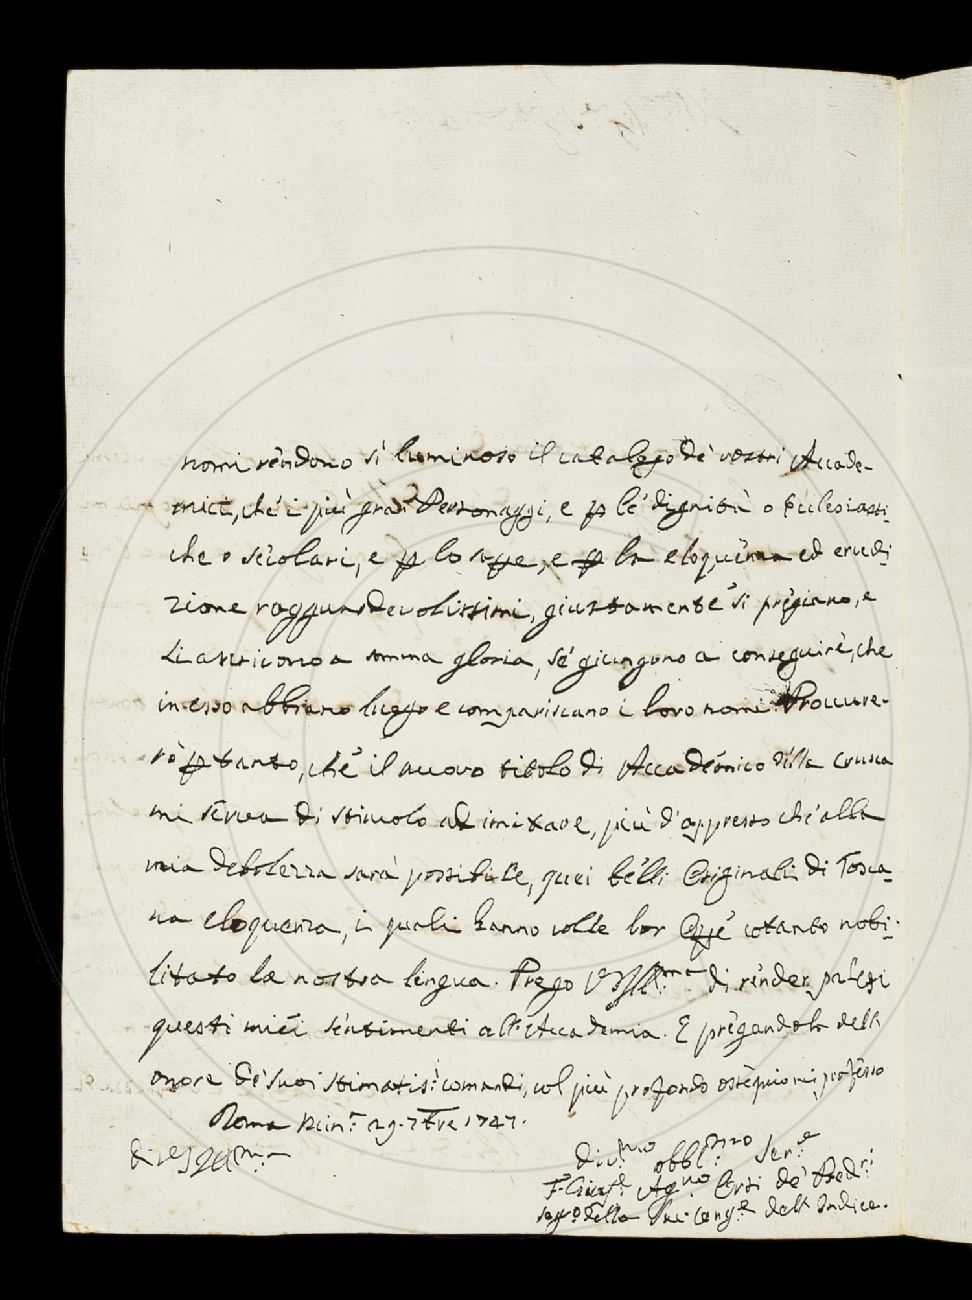 nomi rendono sì luminoso il catalogo de' vostri Accade-
mici, che i più gran Personaggi, e p le dignità o Ecclesiasti-
che o secolari, e p lo , e p la eloquenza ed erudi-
zione ragguardevolissimi, giustamente si pregiano, e
si ascrivono a somma gloria, se giungono a conseguire, che
in esso abbiano luogo e compariscano i loro nomi. Procure-
rò ptanto, che il nuovo titolo di Accademico della Crusca
mi serva di stimolo ad imitare, più d'appresso che alla
mia debolezza sarà possibile, quei belli Originali di Tosca-
na eloquenza, i quali hanno colle lor Ope cotanto nobi-
litato la nostra lingua. Prego V. S. Ill.ma di render palesi
questi miei sentimenti all'Accademia. E pregandola dell'
onore de' suoi stimatis.i comandi, col più profondo ossequio mi professo
Roma 29. 7bre 1747.
di V. S. Ill.ma
Div.mo obbl.mo Ser.e
F. Gius.e Ag.no Orsi de' Pred.i
Seg.o della Sac. Cong.e dell'Indice.